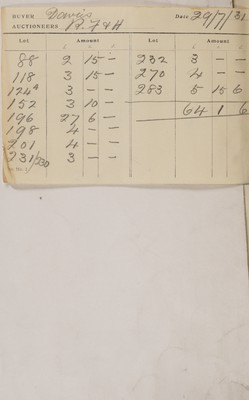 BUYER Dowers Date 29/7/31
AUCTIONEERS P. F & H
Lot Amount Lot Amount
£ s d £ s d
88 2 15 – 232 3 – –
118 3 15 – 270 4 – –
124a 3 – – 283 5 15 6
152 3 10 – 64 1 6
196 27 6 –
198 4 – –
201 4 – –
231/230 3 – –